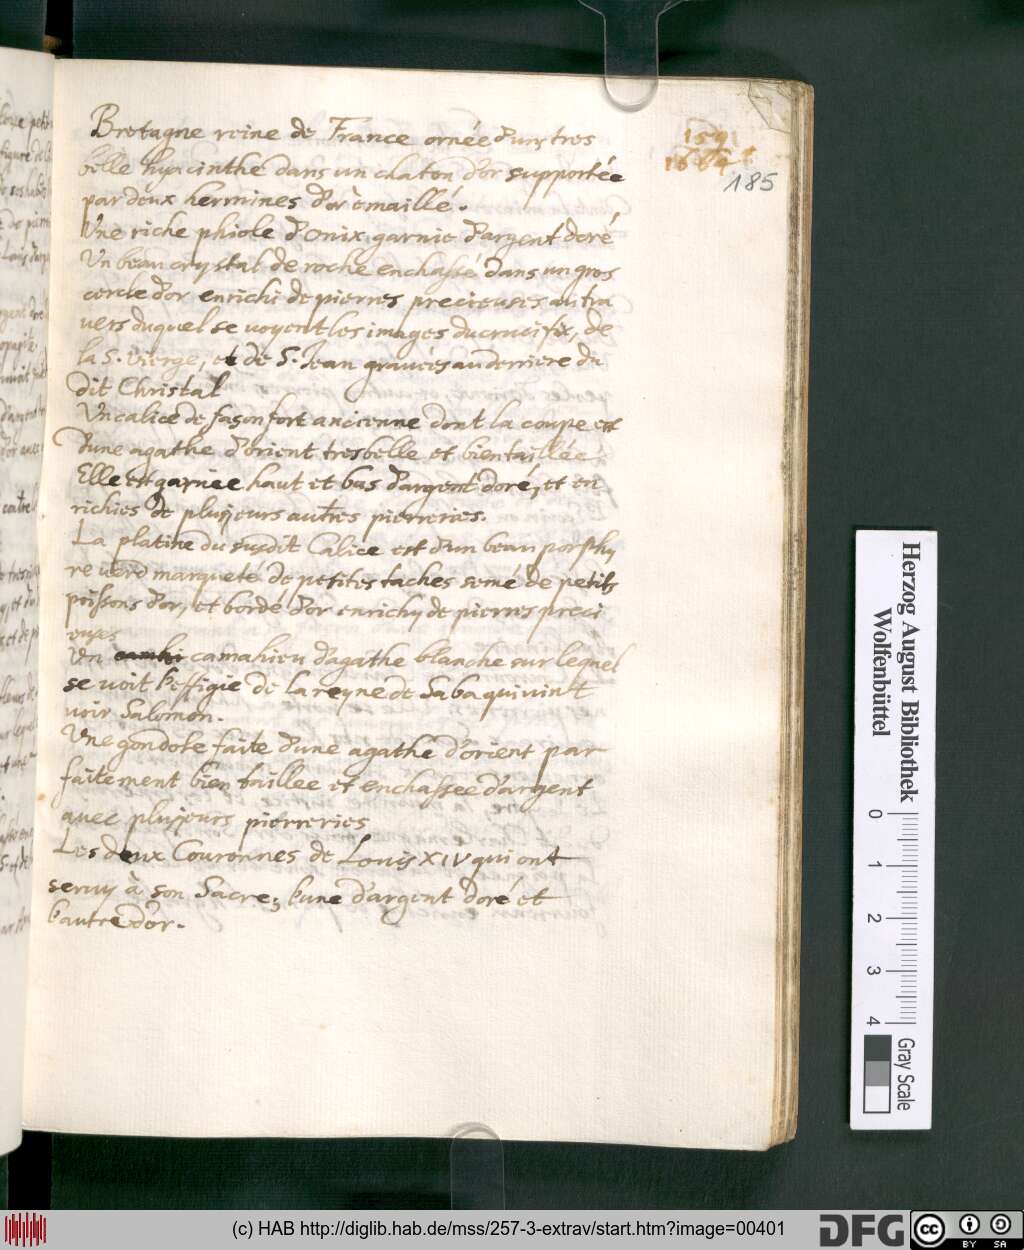 Bretagne reine de France ornée d'un tres
belle hyacinthe dans un chaton d'or supportée
par deux hermines d'or èmaillé.
Une riche phiole d'Onix, garnie d'argent doré
Un beau crystal de roche enchassé dans un gros
cercle d'or enrichi de pierres precieuses au tra
vers duquel se voyent les images du crucifix, de
la S. Vierge, et de S. Jean gravées au derriere du
dit Christal
Un calice de fason fort ancienne dont la coupe est
d'une agathe d'orient tres belle et bien taillée
Elle est garnie haut et bas d'argent doré, et en
richies de plusjeurs autres pierreries.
La platine du susdit Calice est d'un beau porphy
re verd marqueté de petites taches semé de petits
poissons d'or, et bordé d'or enrichy de pierres preci
euses
Un camahieu d'agathe blanche sur lequel
se voit l'effigie de la reyne de Saba qui vint
voir Salomon.
Une gondole faite d'une agathe d'orient par
faitement bien taillee et enchassee d'argent
avec plusjeurs pierreries
Les deux Couronnes de Louis XIV qui ont
servy à son Sacre; l'une d'argent doré et
l'autre d'or.
185
Herzog August Bibliothek
Wolfenbüttel
0 1 2 3 4
Gray Scale
(c) HAB http://diglib.hab.de/mss/257-3-extrav/start.htm?image=00401
DFG
cc BY SA